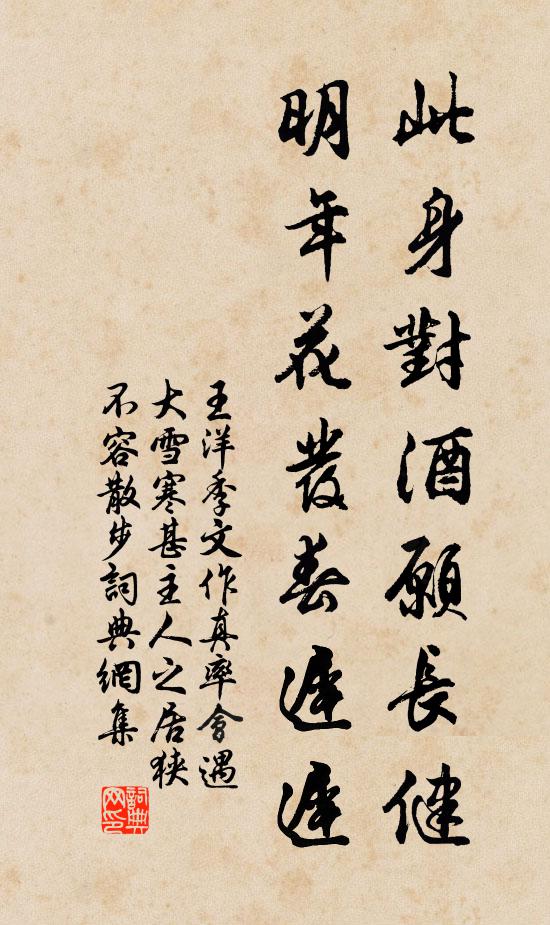 此身對酒願長健
明年花發春遲遲
王洋季文作真率會遇
大雪寒甚主人之居狹
不容散步詞典網集
詞典網印